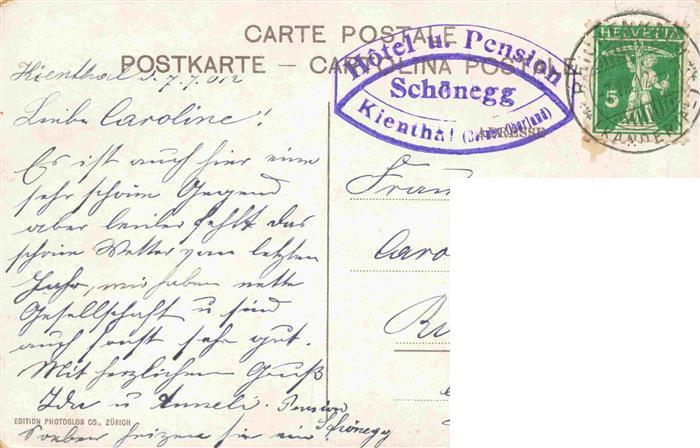 CARTE POSTALE
POSTKARTE — CARTOLINA POSTALE
Hôtel u. Pension
Schönegg
Kienthal (Berner Oberland)
ADRESSE
HELVETIA
5
Kienthal d. 7.7.012
Liebe Caroline!
Es ist auch hier eine
sehr schöne Gegend
aber leider fehlt das
schöne Wetter vom letzten
Jahr, wir haben nette
Gesellschaft u sind
auch sonst sehr gut.
Mit herzlichem Gruß
Ida u Anneli. Pension
Schönegg
Soeben heizen sie ein
Frau
Caro
EDITION PHOTOGLOB CO., ZÜRICH